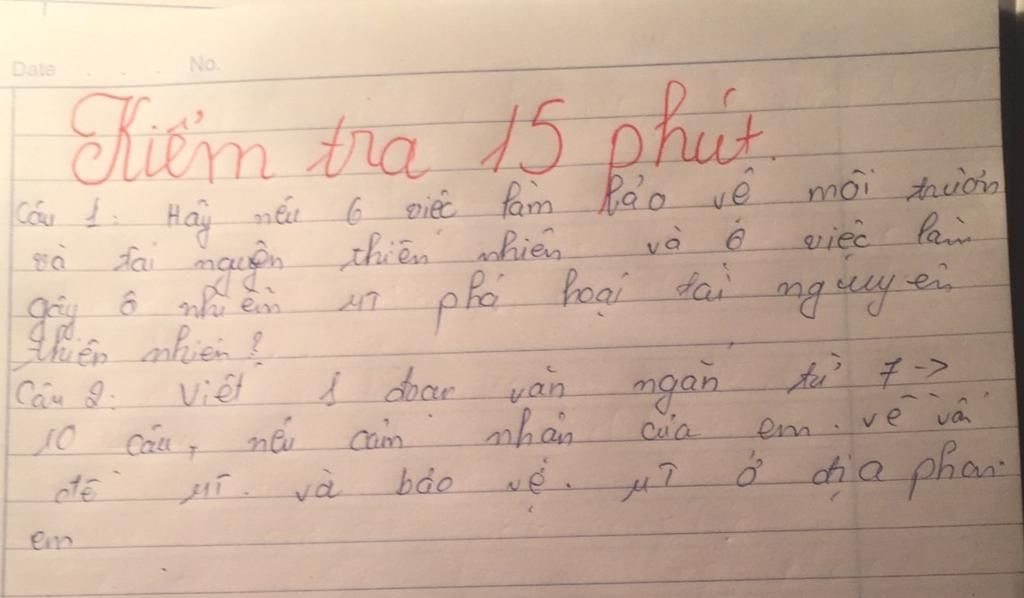 Date . . . No.
Kiểm tra 15 phút.
Câu 1: Hãy nêu 6 việc làm bảo vệ môi trườn
và tài nguyên thiên nhiên và 6 việc làm
gây ô nhiễm MT phá hoại tài nguyên
thiên nhiên?
Câu 2: Viết 1 đoạn văn ngắn từ 7 ->
10 câu, nêu cảm nhận của em. về vấn
đề MT. và bảo vệ. MT ở địa phươn
em